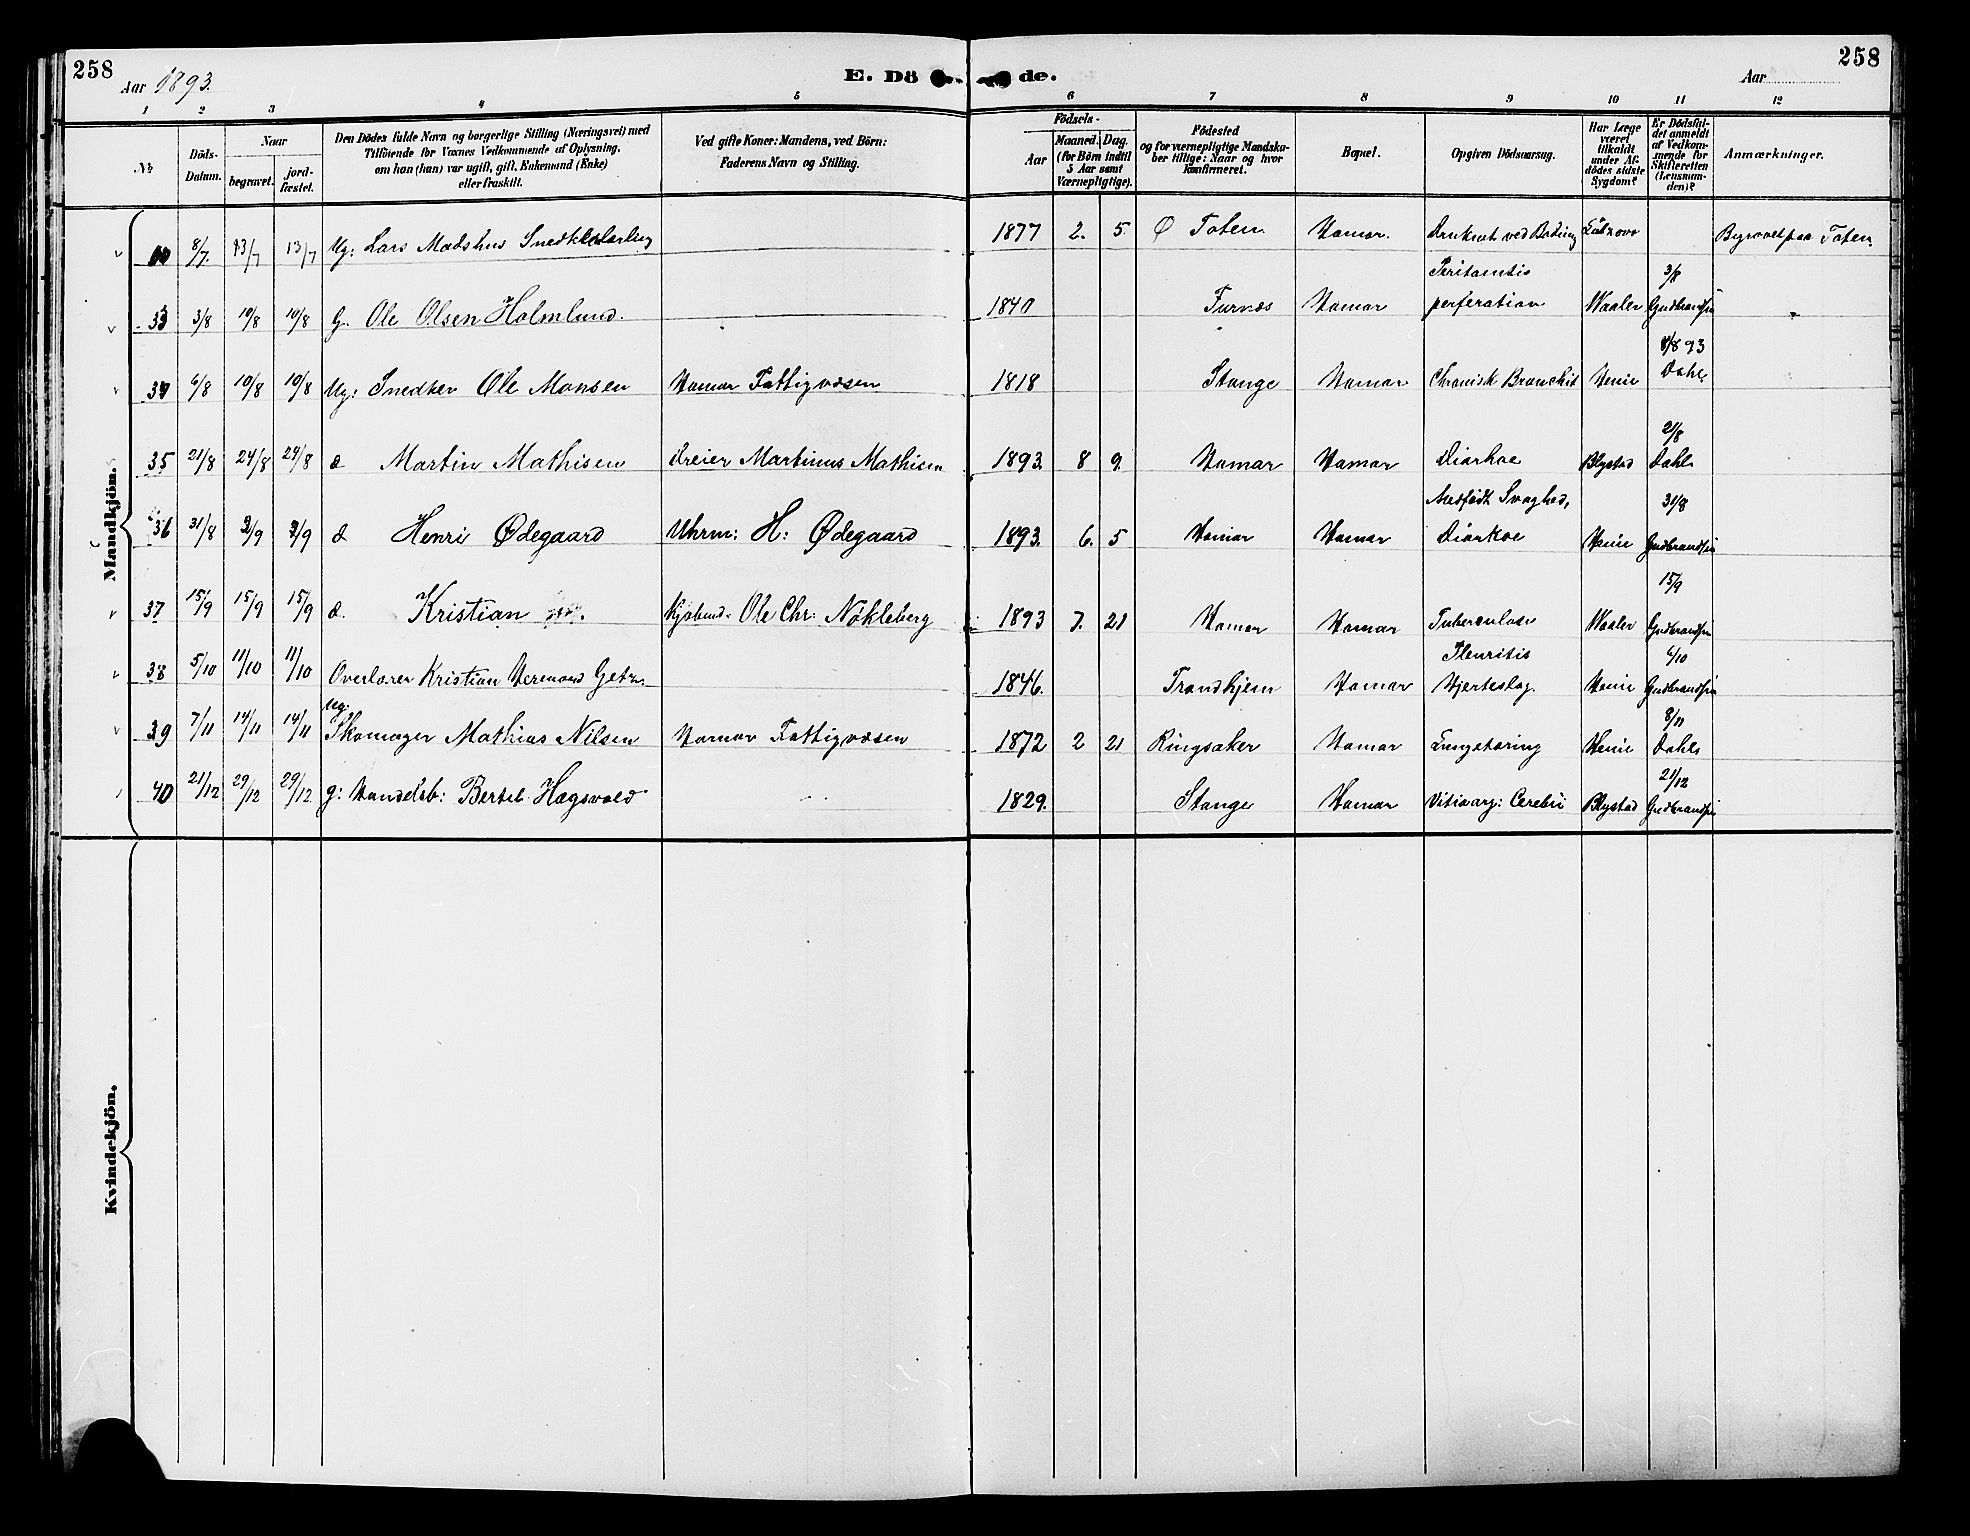 258
Aar 1893.
E. Dö de.
Aar
258
1 2 3 4 5 6 7 8 9 10 11 12
No
Döds-Datum.
Naar
begravet.
jord-fæstet.
Den Dödes fulde Navn og borgerlige Stilling (Næringsvei) med
Tilföiende for Voxnes Vedkommende af Oplysning,
om han (hun) var ugift, gift, Enkemand (Enke)
eller fraskilt.
Ved gifte Koner: Mandens, ved Börn:
Faderens Navn og Stilling.
Födsels-
Aar
Maaned. Dag.
(for Börn indtil
5 Aar samt
Værnepligtige).
Födested
og for værnepligtige Mandska-
ber tillige: Naar og hvor
konfirmeret.
Bopæl.
Opgiven Dödsaarsag.
Har Læge
været
tilkaldt
under Af-
dödes sidste
Sygdom?
Er Dödsfal-
det anmeldt
af Vedkom-
mende for
Skifteretten
(Lensman-
den)?
Anmærkninger.
Mandkjön.
8/7. 13/7 13/7 Ug: Lars Madshus 1877 2. 5. Ø Toten Hamar. Druknet ved Bading Begravet paa Toten.
33 3/8 10/8 10/8 G. Ole Olsen Holmlund. 1840 Furnæs Hamar perforation Waaler 3/8 Gudbrandsen
34 6/8 10/8 10/8 Ug: Snedker Ole Monsen Hamar Fattigvæsen 1818 Stange Hamar Chronisk Bronchit Henie 7/8 93 Dahl
35 21/8 24/8 24/8 d Martin Mathisen Dreier Martinus Mathisen 1893. 8 9. Hamar Hamar Diarhoe Blystad 21/8 Dahl
36 31/8 2/9 2/9 d Henri Ødegaard Uhrm: H: Ødegaard 1893. 6. 5 Hamar Hamar Medfödt Svaghed, Diarhoe Henie 31/8 Gudbrandsen
37 15/9 15/9 15/9 d. Kristian Ole Chr: Nökleberg 1893 7. 21 Hamar Hamar Tuberculose Waaler 15/9 Gudbrandsen
38 5/10 11/10 11/10 Overlærer Kristian Hermand Getz. 1846. Trondhjem Hamar Pleuritis Hjerteslag. Henie 6/10 Gudbrandsen
39 7/11 14/11 14/11 Ug. Skomager Mathias Nilsen Hamar Fattigvæsen 1872 2 21 Ringsaker Hamar Lungetæring Henie 8/11 Dahl
40 21/12 29/12 29/12 g: Handelsb: Bertel Hagsvold 1829. Stange Hamar Vitium org: Cerebri Blystad 21/12 Gudbrandsen
Kvindekjön.